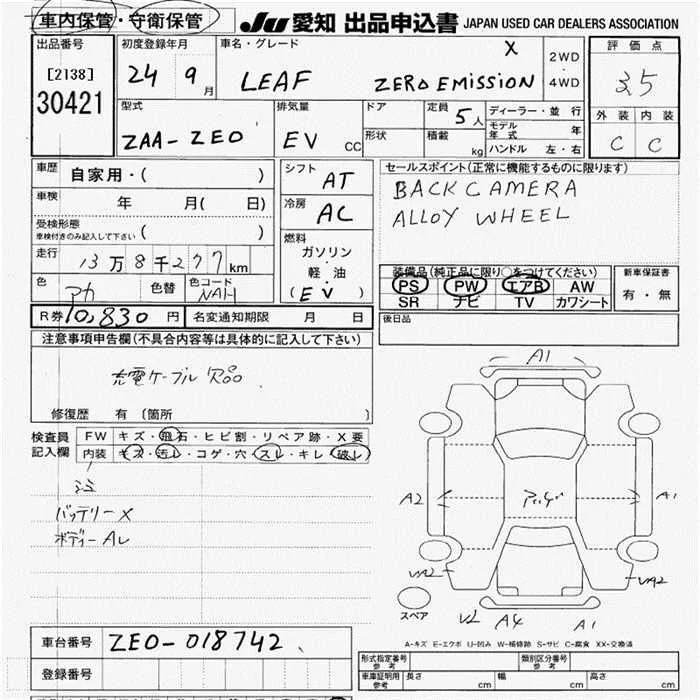 車内保管・守衛保管
JU 愛知 出品申込書 JAPAN USED CAR DEALERS ASSOCIATION
出品番号
[2138]
30421
初度登録年月
24 9 月
車名・グレード
LEAF X ZERO EMISSION
2WD
・
4WD
評価点
3.5
外装 内装
C C
型式
ZAA-ZE0
排気量
EV CC
ドア
形状
定員 5人
積載 kg
ディーラー・並行
モデル年式 年
ハンドル 左・右
車歴 自家用・( )
車検 年 月( 日)
受検形態
車検付きのみ記入して下さい ( )
走行 13万8千277km
色 アカ 色替 色コード NAH
シフト AT
冷房 AC
燃料
ガソリン
・
軽・油
(EV)
セールスポイント(正常に機能するものに限ります)
BACK CAMERA
ALLOY WHEEL
装備品(純正品に限り○をつけてください)
PS PW エアB AW
SR ナビ TV カワシート
新車保証書
有・無
R券 10,830 円 名変通知期限 月 日
後日品
注意事項申告欄(不具合内容等は具体的に記入して下さい)
修復歴 有 〔箇所 〕
検査員
記入欄
FW キズ・飛石・ヒビ割・リペア跡・X要
内装 キズ・汚レ・コゲ・穴・スレ・キレ・破レ
注
バッテリーX
ボディーAレ
A1
A2
A1
VA2
VA2
スペア
V2 A4 A1
A-キズ E-エクボ U-凹み W-補修跡 S-サビ C-腐食 XX-交換済
車台番号 ZE0-018742
登録番号
形式指定番号
参考
類別区分番号
参考
車庫証明用
参考
長さ cm 幅 cm 高さ cm